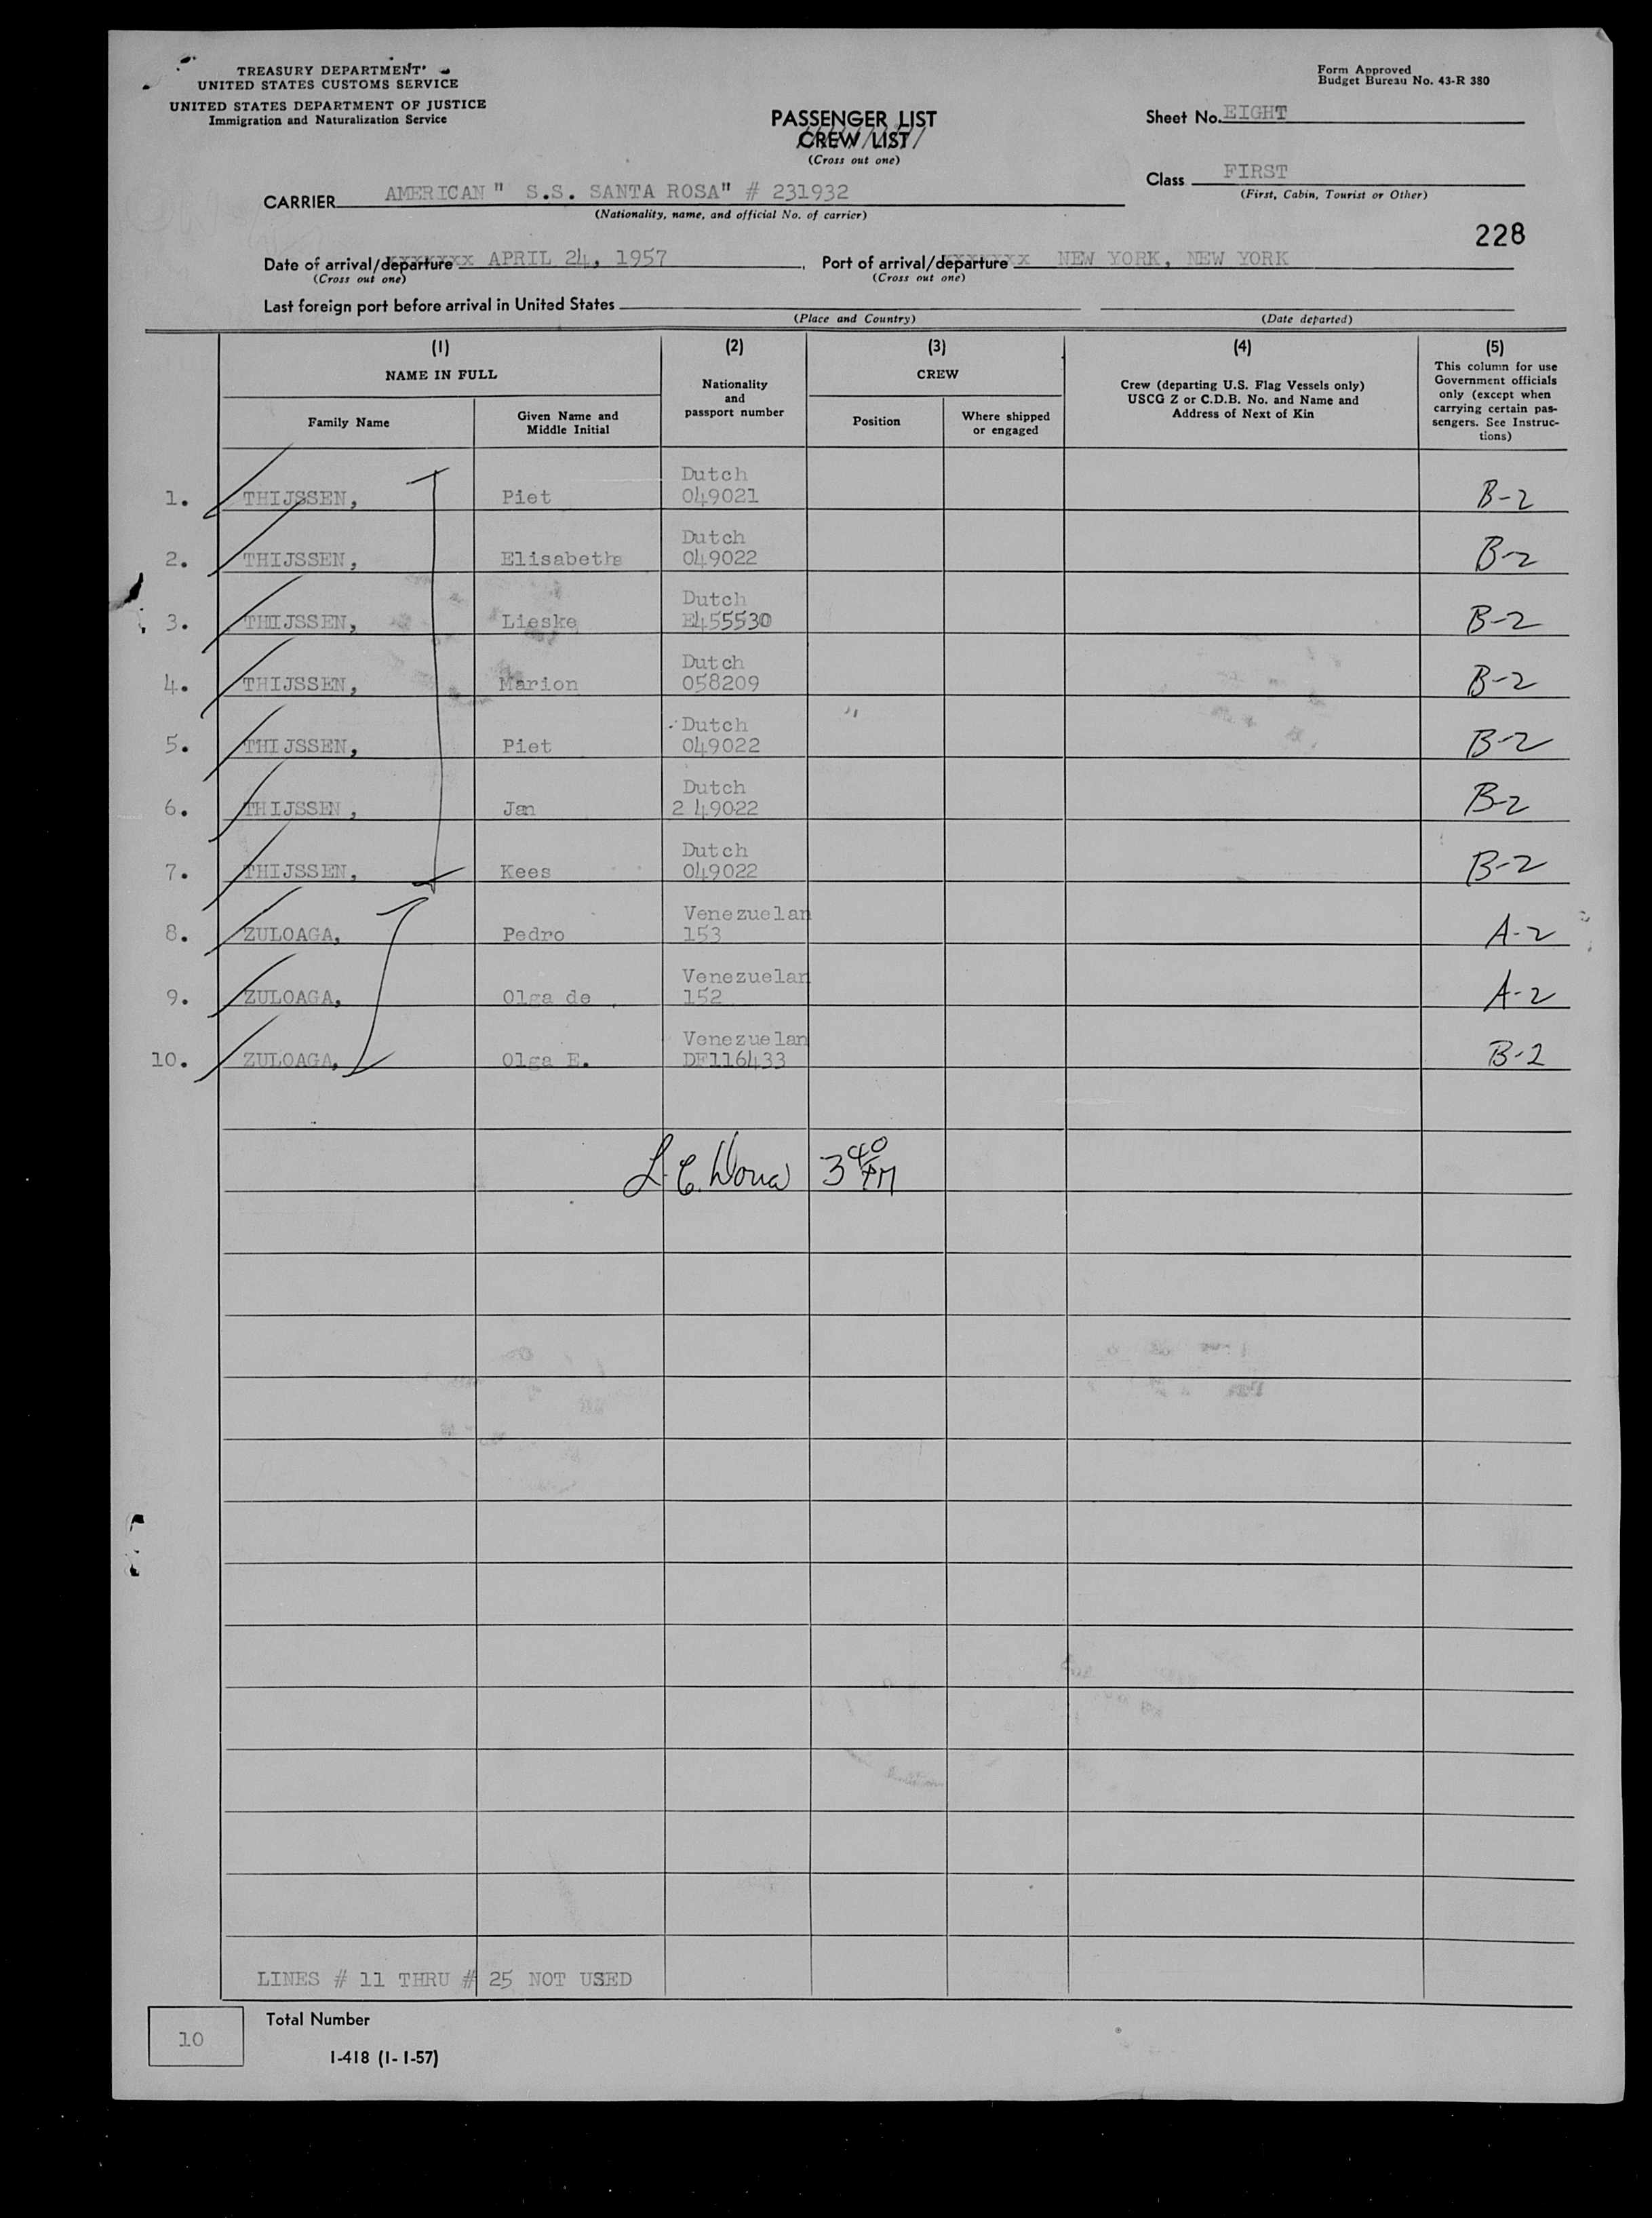 TREASURY DEPARTMENT
UNITED STATES CUSTOMS SERVICE
UNITED STATES DEPARTMENT OF JUSTICE
Immigration and Naturalization Service
Form Approved
Budget Bureau No. 43-R 380
PASSENGER LIST
CREW LIST
(Cross out one)
Sheet No. EIGHT
Class FIRST
(First, Cabin, Tourist or Other)
CARRIER AMERICAN " S.S. SANTA ROSA" # 231932
(Nationality, name, and official No. of carrier)
228
Date of arrival/departure xxxxxxx APRIL 24, 1957, Port of arrival/departure xxxxxxx NEW YORK, NEW YORK
(Cross out one) (Cross out one)
Last foreign port before arrival in United States
(Place and Country) (Date departed)
(1) (2) (3) (4) (5)
NAME IN FULL
Family Name
Given Name and
Middle Initial
Nationality
and
passport number
CREW
Position
Where shipped
or engaged
Crew (departing U.S. Flag Vessels only)
USCG Z or C.D.B. No. and Name and
Address of Next of Kin
This column for use
Government officials
only (except when
carrying certain pas-
sengers. See Instruc-
tions)
Dutch
1. THIJSSEN, Piet 049021 B-2
Dutch
2. THIJSSEN, Elisabeth 049022 B-2
Dutch
3. THIJSSEN, Lieske E455530 B-2
Dutch
4. THIJSSEN, Marion 058209 B-2
Dutch
5. THIJSSEN, Piet 049022 B-2
Dutch
6. THIJSSEN, Jan 2 49022 B-2
Dutch
7. THIJSSEN, Kees 049022 B-2
Venezuelan
8. ZULOAGA, Pedro 153 A-2
Venezuelan
9. ZULOAGA, Olga de 152 A-2
Venezuelan
10. ZULOAGA, Olga E. DF116433 B-2
L. C. 3 40 PM
LINES # 11 THRU # 25 NOT USED
10 Total Number
I-418 (1-1-57)